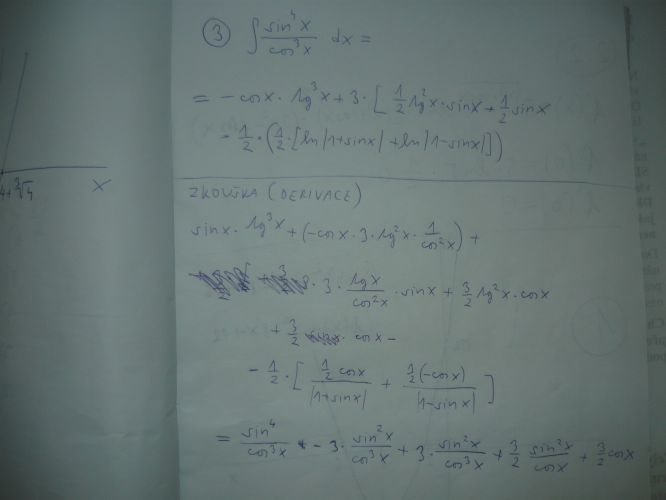 ③ ∫ sin⁴x / cos³x dx =
= - cosx · tg³x + 3 · [ 1/2 tg²x · sinx + 1/2 sinx
- 1/2 · ( 1/2 · [ ln |1+sinx| + ln |1-sinx| ] )
4+ ³√4 x
ZKOUŠKA (DERIVACE)
sinx · tg³x + (-cosx · 3 · tg²x · 1/cos²x) +
· 3 · tgx/cos²x · sinx + 3/2 tg²x · cosx
+ 3/2 · cosx -
- 1/2 · [ 1/2 cosx / |1+sinx| + 1/2 (-cosx) / |1-sinx| ]
= sin⁴/cos³x - 3 · sin²x/cos³x + 3 · sin²x/cos³x + 3/2 sin²x/cosx + 3/2 cosx